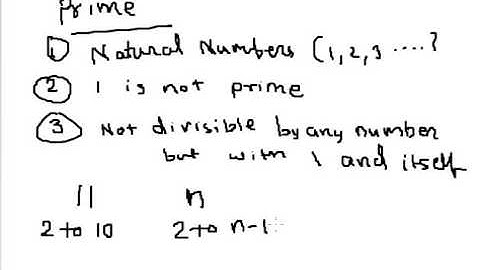 Prime
1 Natural Numbers (1,2,3 ....?
2 1 is not prime
3 Not divisible by any number
but with 1 and itself
11 n
2 to 10 2 to n-1